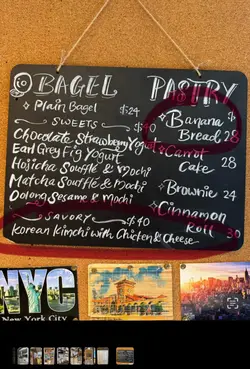 BAGEL PASTRY
Plain Bagel $24
SWEETS
Chocolate Strawberry Yogurt
Earl Grey Fig Yogurt
Hojicha Soufflé & Mochi
Matcha Soufflé & Mochi
Oolong Sesame & Mochi
SAVORY $40
Korean Kimchi with Chicken & Cheese
Banana
Bread 28
Carrot
Cake 28
Brownie 24
Cinnamon
Roll 30
NYC
New York City